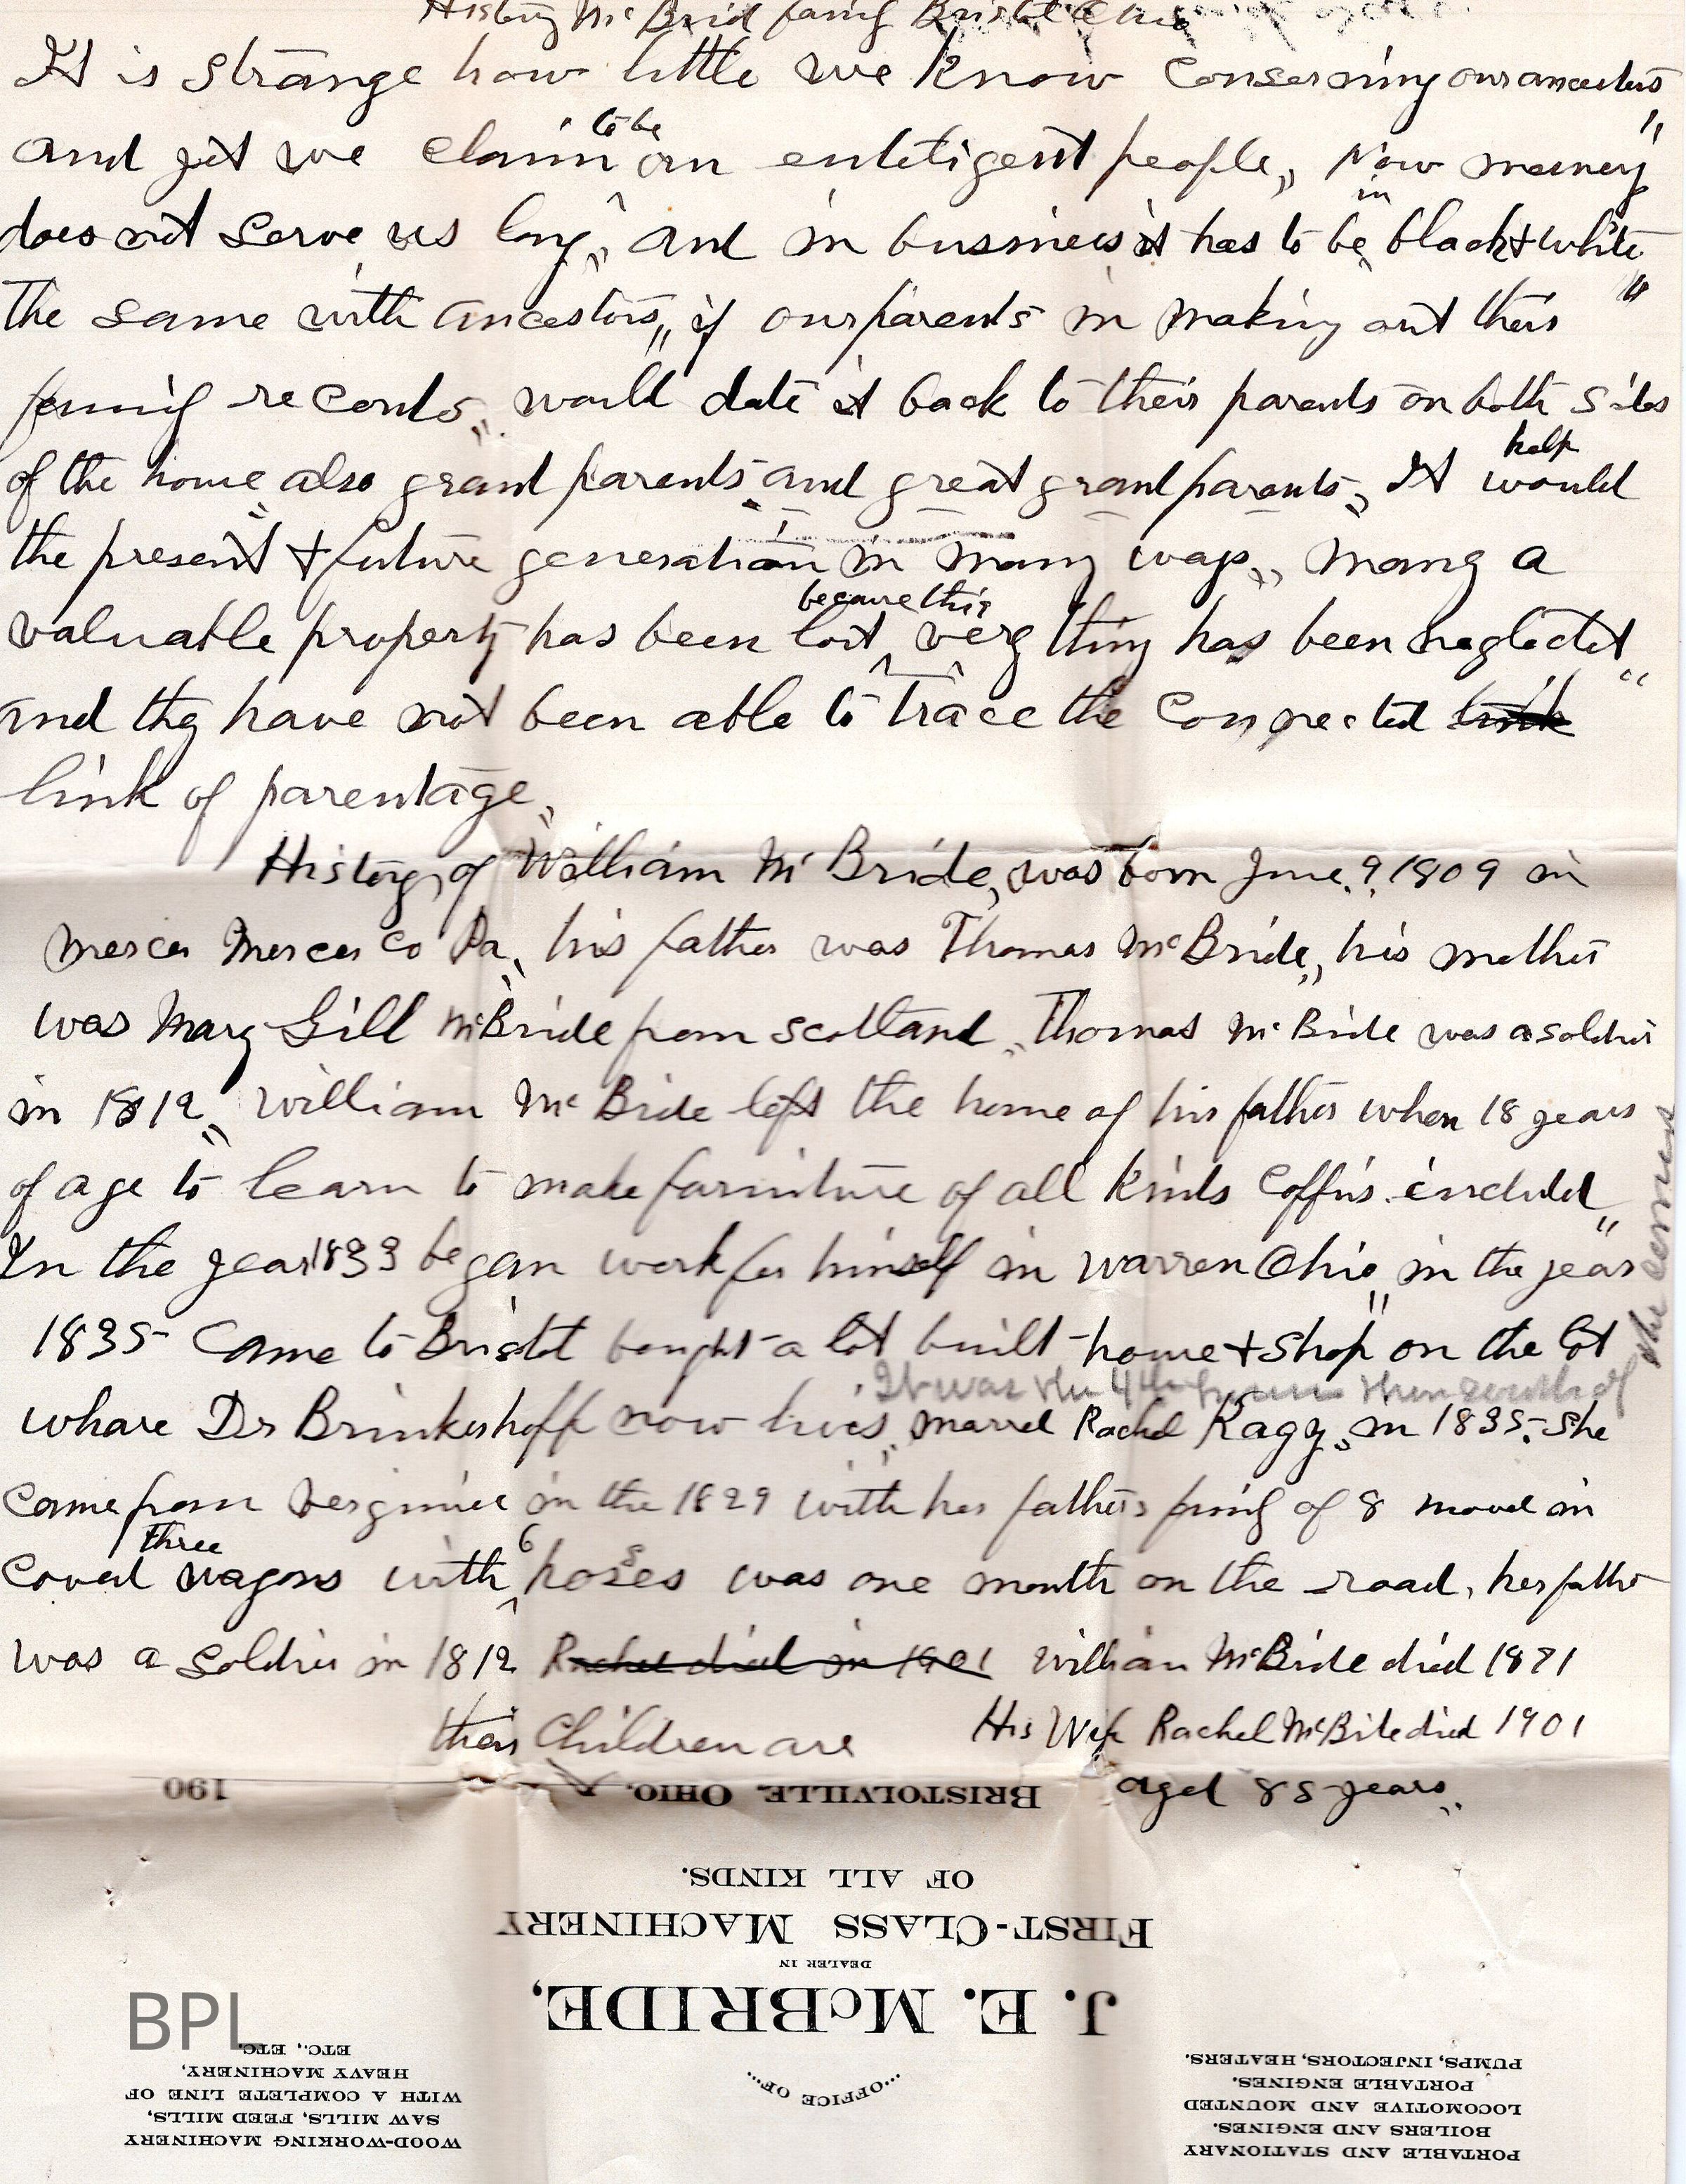 History McBrid famig Bristol Ohio
It is strange how little we know conserning our ancesters "
to be
and yit we claim an entetigent people,, Now money
in
does not serve us long,, and in bussiness it has to be black & white "
The same with ancestors,, if our parents in making out their
famig records,, would date it back to their parents on both sides
help
of the home also grand parents and great grand parents,, It would
the present & future generation in many ways,, mang a
because this
valuable property has been lost verg thing has been neglectet "
and thg have not been able to trace the connected link
link of parentage,,
History of William McBride, was born June.?.1809 in
mercer Mercer co Pa,, his father was Thomas McBride,, his mother
was Marg Gill McBride from scotland,, Thomas McBride was a soldier
in 1812,, William McBride left the home of his father when 18 years
of age to learn to make furniture of all kinds coffins. includd "
In the year 1833 began work for himself in warren Ohio,, in the year
1835 Came to Bristol bought a lot built home & shop on the lot
It was the 4th house then south of the cemeus
whare Dr Brinkerhoff now lives,, marred Rachel Kagy,, in 1835. she
came from verginia in the 1829 with her fathers famig of 8 moved in
three 6
coverd wagons with horses was one month on the road, her father
was a soldier in 1812 Rachel died in 1901 William McBride died 1871
their Children are His Wife Rachel McBride died 1901
aged 88 years,,
190
BRISTOLVILLE, OHIO,
OF ALL KINDS.
FIRST-CLASS MACHINERY
DEALER IN
J. E. McBRIDE,
...OFFICE OF...
WOOD-WORKING MACHINERY
SAW MILLS, FEED MILLS,
WITH A COMPLETE LINE OF
HEAVY MACHINERY,
ETC., ETC.
PORTABLE AND STATIONARY
BOILERS AND ENGINES.
LOCOMOTIVE AND MOUNTED
PORTABLE ENGINES.
PUMPS, INJECTORS, HEATERS.
BPL